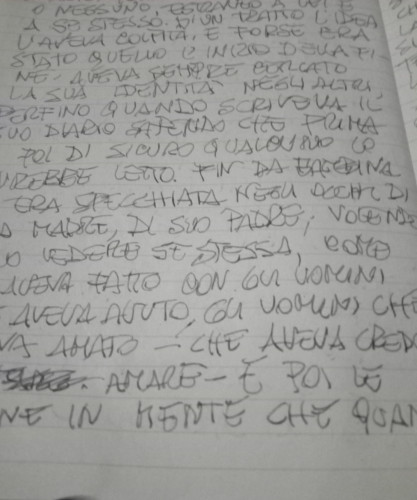 O NESSUNO, ESTRANEO A LUI E
A SE STESSO. D'UN TRATTO L'IDEA
L'AVEVA COLPITA, E FORSE ERA
STATO QUELLO L'INIZIO DELLA FI-
NE. AVEVA SEMPRE CERCATO
LA SUA IDENTITÀ NEGLI ALTRI,
PERFINO QUANDO SCRIVEVA IL
SUO DIARIO SAPENDO CHE PRIMA
POI DI SICURO QUALCUNO LO
VREBBE LETTO. FIN DA BAMBINA
ERA SPECCHIATA NEGLI OCCHI DI
A MADRE, DI SUO PADRE, VOLENDO
O VEDERE SE STESSA, COME
AVEVA FATTO CON GLI UOMINI
AVEVA AVUTO, GLI UOMINI CHE
VA AMATO – CHE AVEVA CREDU
AMARE – E POI LE
NE IN MENTE CHE QUAN